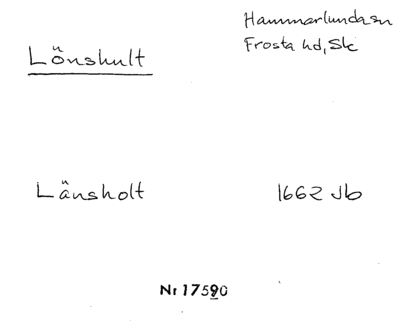 Hammarlunda sn
Frosta hd, Sk
Lönshult
Länsholt 1662 Jb
Nr 17590